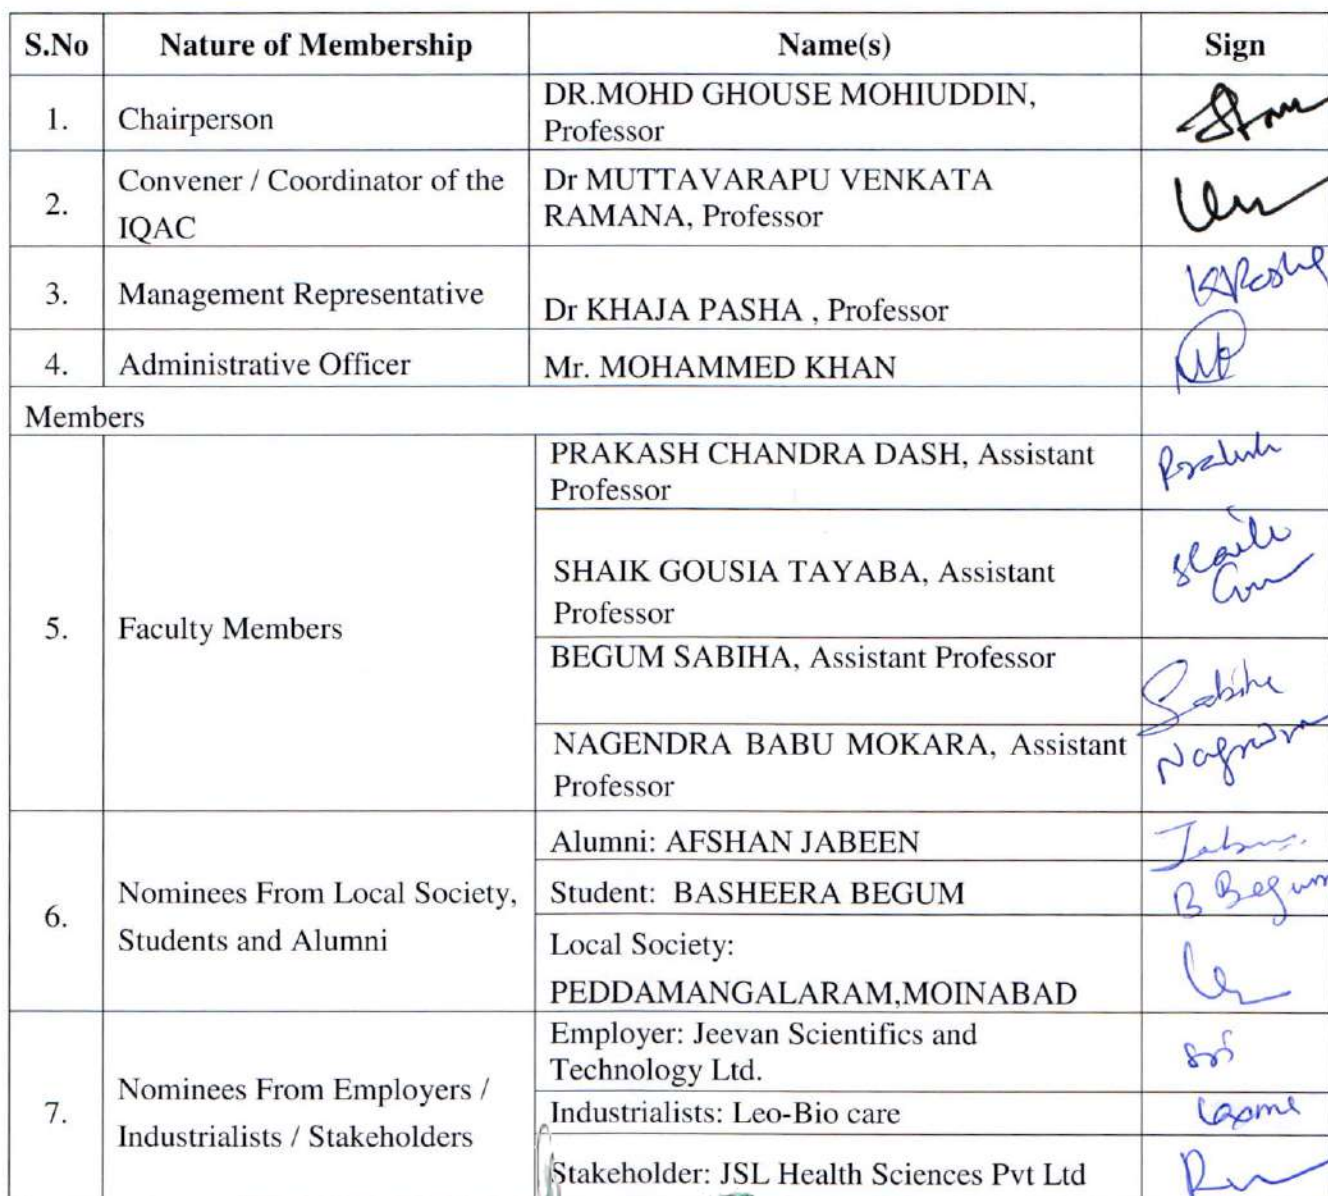 S.No Nature of Membership Name(s) Sign
1. Chairperson DR.MOHD GHOUSE MOHIUDDIN,
Professor
2. Convener / Coordinator of the
IQAC Dr MUTTAVARAPU VENKATA
RAMANA, Professor
3. Management Representative Dr KHAJA PASHA , Professor
4. Administrative Officer Mr. MOHAMMED KHAN
Members
5. Faculty Members
PRAKASH CHANDRA DASH, Assistant
Professor
SHAIK GOUSIA TAYABA, Assistant
Professor
BEGUM SABIHA, Assistant Professor
Sabiha
NAGENDRA BABU MOKARA, Assistant
Professor
6. Nominees From Local Society,
Students and Alumni
Alumni: AFSHAN JABEEN
Student: BASHEERA BEGUM
B Begum
Local Society:
PEDDAMANGALARAM,MOINABAD
7. Nominees From Employers /
Industrialists / Stakeholders
Employer: Jeevan Scientifics and
Technology Ltd.
Industrialists: Leo-Bio care
Stakeholder: JSL Health Sciences Pvt Ltd